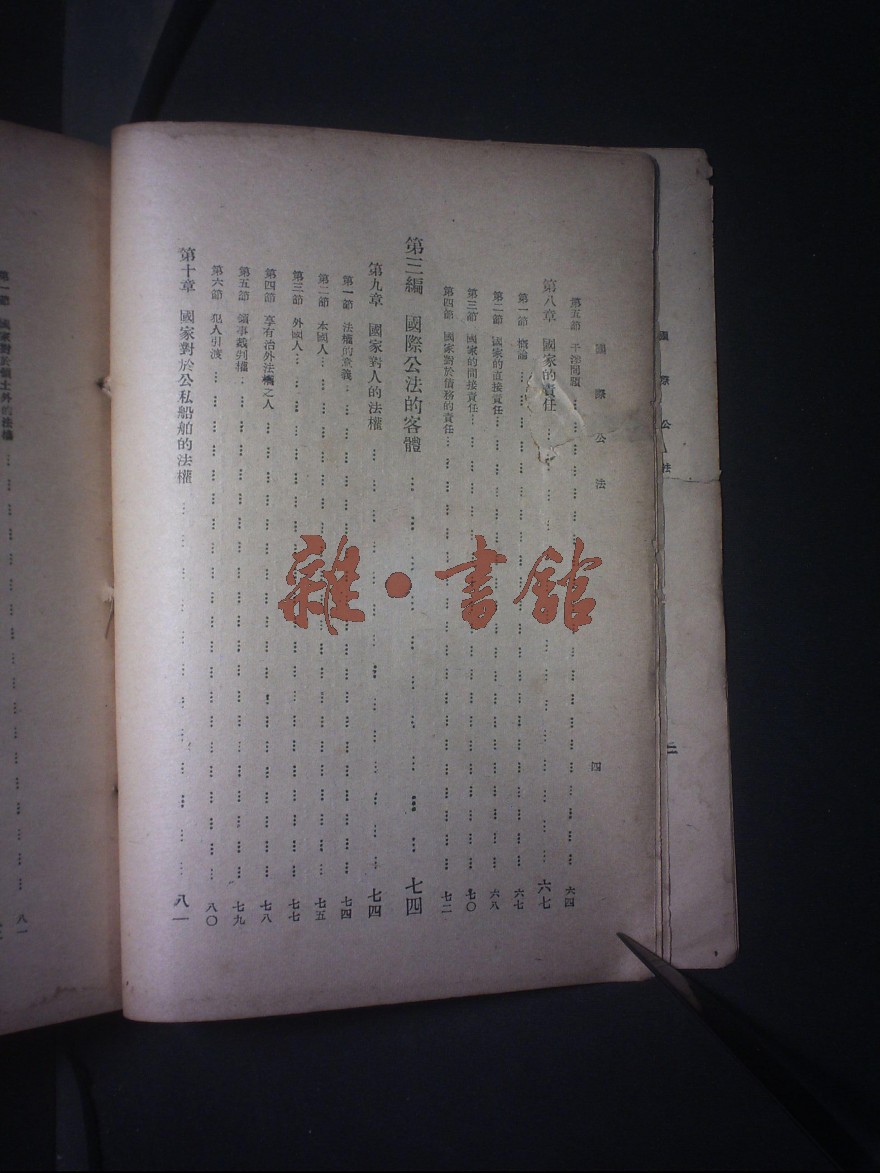 國際公法
四
第五節 干涉問題…………六四
第八章 國家的責任…………六七
第一節 概論…………六七
第二節 國家的直接責任…………六八
第三節 國家的間接責任…………七〇
第四節 國家對於債務的責任…………七二
第三編 國際公法的客體…………七四
第九章 國家對人的法權…………七四
第一節 法權的意義…………七四
第二節 本國人…………七五
第三節 外國人…………七七
第四節 享有治外法權之人…………七八
第五節 領事裁判權…………七九
第六節 犯人引渡…………八〇
第十章 國家對於公私船舶的法權…………八一
第一節 國家對於領土外的法權…………八一
國際公法
二
雜·書館